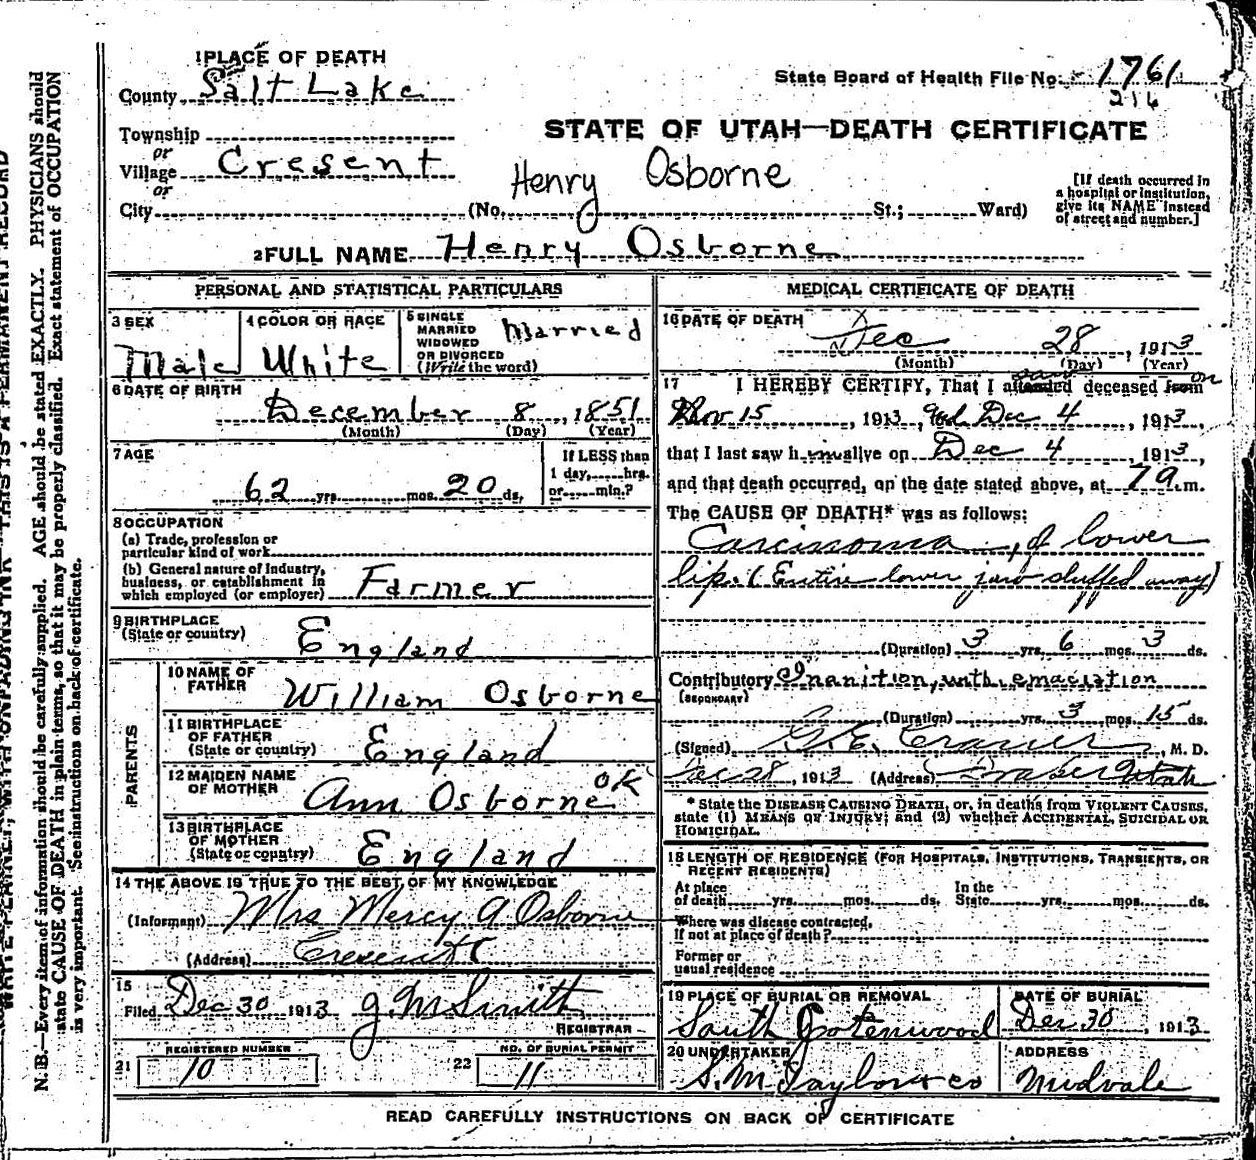 1 PLACE OF DEATH
County Salt Lake
Township
or
Village Cresent
or
City (No. St.; Ward)
State Board of Health File No. 1761
216
STATE OF UTAH—DEATH CERTIFICATE
Henry Osborne
[If death occurred in
a hospital or institution,
give its NAME instead
of street and number.]
2 FULL NAME Henry Osborne
PERSONAL AND STATISTICAL PARTICULARS
3 SEX
Male
4 COLOR OR RACE
White
5 SINGLE
MARRIED
WIDOWED
OR DIVORCED
(Write the word)
Married
6 DATE OF BIRTH
December 8, 1851
(Month) (Day) (Year)
7 AGE
62 yrs. mos. 20 ds.
If LESS than
1 day, hrs.
or min.?
8 OCCUPATION
(a) Trade, profession or
particular kind of work
(b) General nature of Industry,
business, or establishment in
which employed (or employer) Farmer
9 BIRTHPLACE
(State or country) England
PARENTS
10 NAME OF
FATHER William Osborne
11 BIRTHPLACE
OF FATHER
(State or country) England
12 MAIDEN NAME
OF MOTHER Ann Osborne OK
13 BIRTHPLACE
OF MOTHER
(State or country) England
14 THE ABOVE IS TRUE TO THE BEST OF MY KNOWLEDGE
(Informant) Mrs Mercy A Osborne
(Address) Crescent
15
Filed Dec 30 1913 J. M Smith
REGISTRAR
REGISTERED NUMBER
21 10
NO. OF BURIAL PERMIT
22 11
MEDICAL CERTIFICATE OF DEATH
16 DATE OF DEATH
Dec 28, 1913
(Month) (Day) (Year)
17 I HEREBY CERTIFY, That I attended saw deceased from on
Nov 15, 1913, and Dec 4, 1913,
that I last saw him alive on Dec 4, 1913,
and that death occurred, on the date stated above, at 7 a.m.
The CAUSE OF DEATH* was as follows:
Carcinoma, of lower
lip. (Entire lower jaw sluffed away)
(Duration) 3 yrs. 6 mos. 3 ds.
Contributory Inanition, with emaciation
(SECONDARY)
(Duration) yrs. 3 mos. 15 ds.
(Signed) G. E. Cramer, M. D.
Dec 28, 1913 (Address) Draper Utah
* State the DISEASE CAUSING DEATH, or, in deaths from VIOLENT CAUSES,
state (1) MEANS OF INJURY; and (2) whether ACCIDENTAL, SUICIDAL OR
HOMICIDAL.
18 LENGTH OF RESIDENCE (FOR HOSPITALS, INSTITUTIONS, TRANSIENTS, OR
RECENT RESIDENTS)
At place In the
of death yrs. mos. ds. State yrs. mos. ds.
Where was disease contracted,
If not at place of death?
Former or
usual residence
19 PLACE OF BURIAL OR REMOVAL
South Cotenwood
DATE OF BURIAL
Dec 30, 1913
20 UNDERTAKER
S. M. Taylor & co
ADDRESS
Midvale
READ CAREFULLY INSTRUCTIONS ON BACK OF CERTIFICATE
WRITE PLAINLY, WITH UNFADING INK—THIS IS A PERMANENT RECORD
N. B.—Every item of information should be carefully supplied. AGE should be stated EXACTLY. PHYSICIANS should
state CAUSE OF DEATH in plain terms, so that it may be properly classified. Exact statement of OCCUPATION
is very important. See instructions on back of certificate.